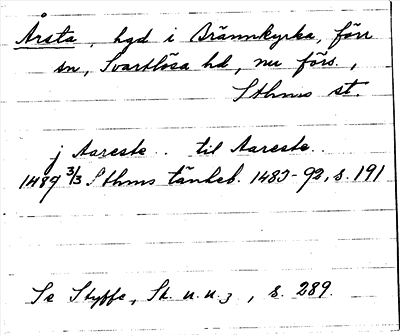 Årsta, hgd i Brännkyrka, förr
sn, Svartlösa hd, nu förs.,
Sthms st.
j Aareste.. til Aareste..
1489 3/3 Sthms tänkeb. 1483-92, s. 191
Se Styffe, Sk. u. u. 3, s. 289.